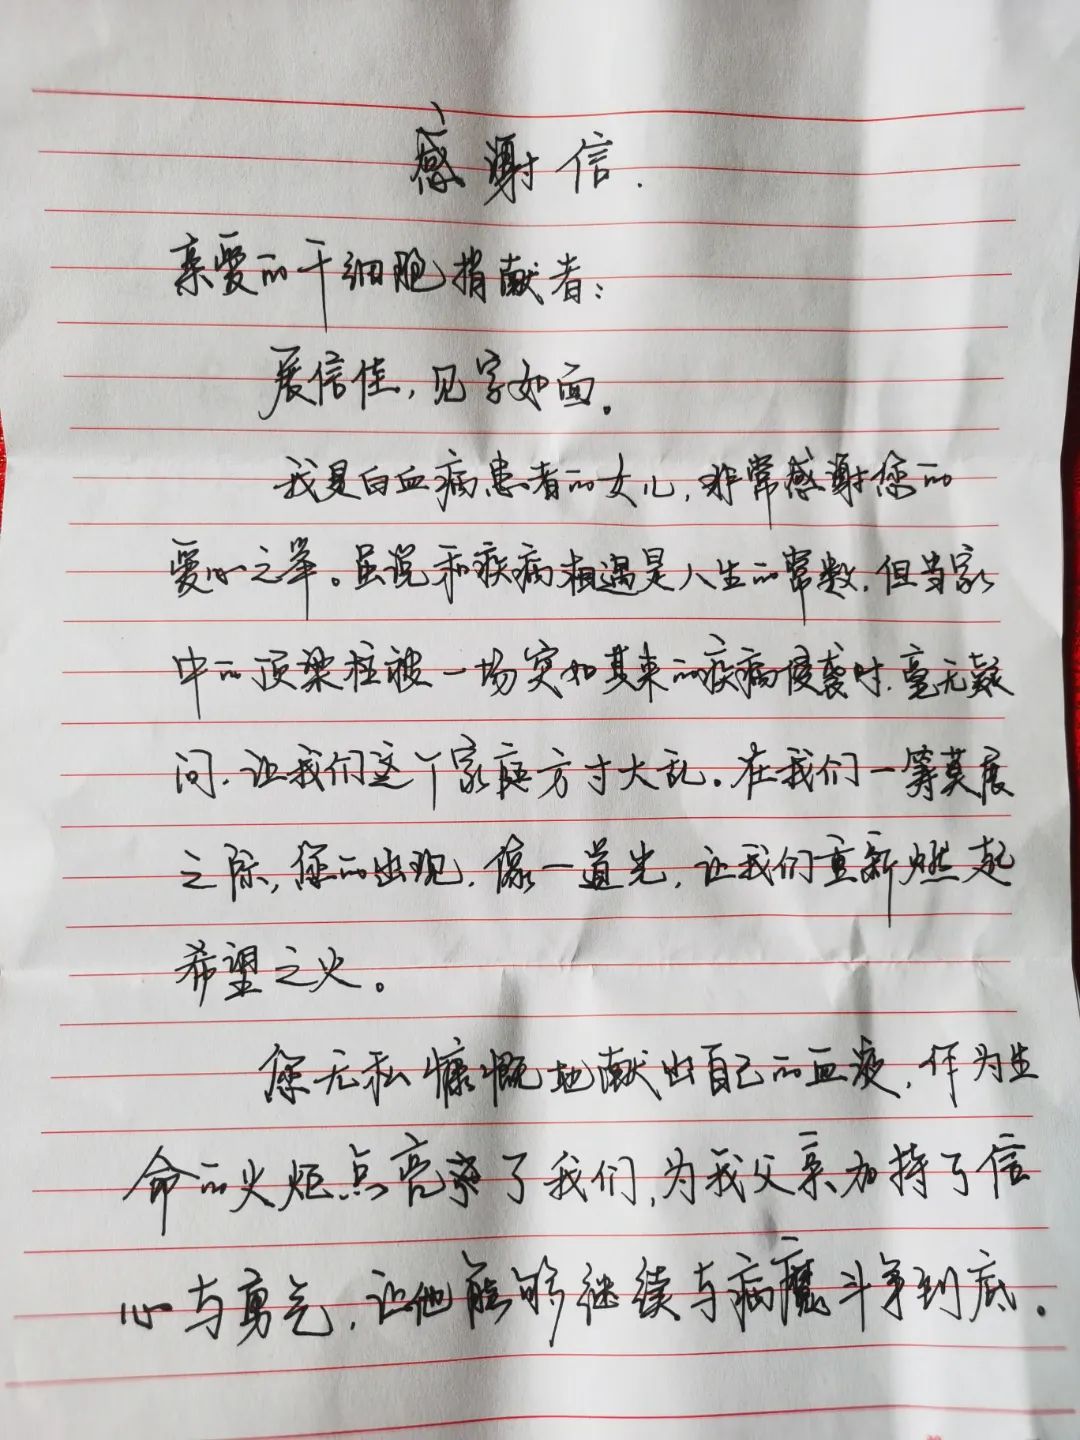 感谢信.
亲爱的干细胞捐献者:
展信佳,见字如面。
我是白血病患者的女儿,非常感谢您的
爱心之举。虽说和疾病相遇是人生的常数,但当家
中的顶梁柱被一场突如其来的疾病侵袭时,毫无疑
问,让我们这个家庭方寸大乱。在我们一筹莫展
之际,您的出现,像一道光,让我们重新燃起
希望之火。
您无私慷慨地献出自己的血液,作为生
命的火炬点亮了我们,为我父亲加持了信
心与勇气,让他能够继续与病魔斗争到底。